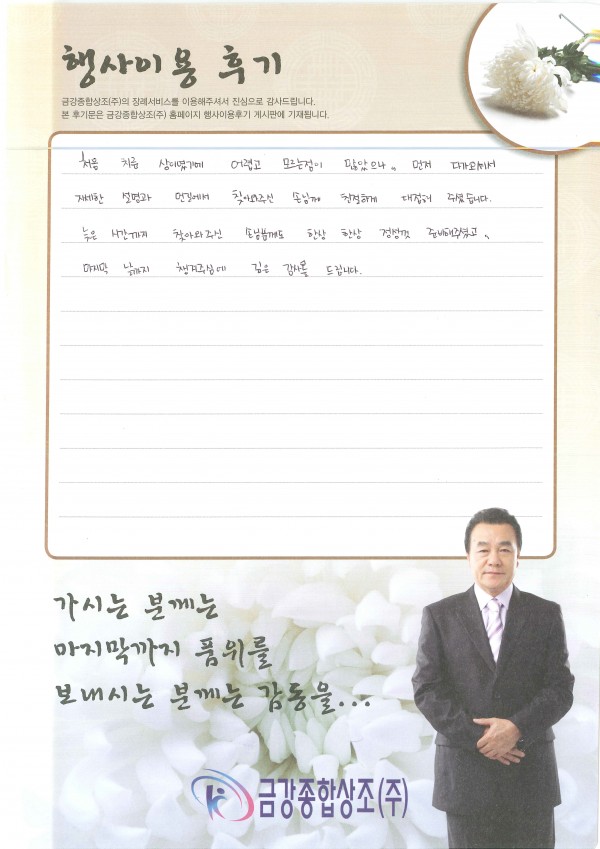 행사이용 후기
금강종합상조(주)의 장례서비스를 이용해주셔서 진심으로 감사드립니다.
본 후기문은 금강종합상조(주) 홈페이지 행사이용후기 게시판에 기재됩니다.
처음 치룬 상이였기에 어렵고 모르는점이 많았으나, 먼저 다가와서
자세한 설명과 먼길에서 찾아와주신 손님께 친절하게 대접해 주셨습니다.
늦은 시간까지 찾아와주신 손님분께도 한상 한상 정성껏 준비해주셨고,
마지막 날까지 챙겨주심에 깊은 감사를 드립니다.
가시는 분께는
마지막까지 품위를
보내시는 분께는 감동을...
금강종합상조(주)